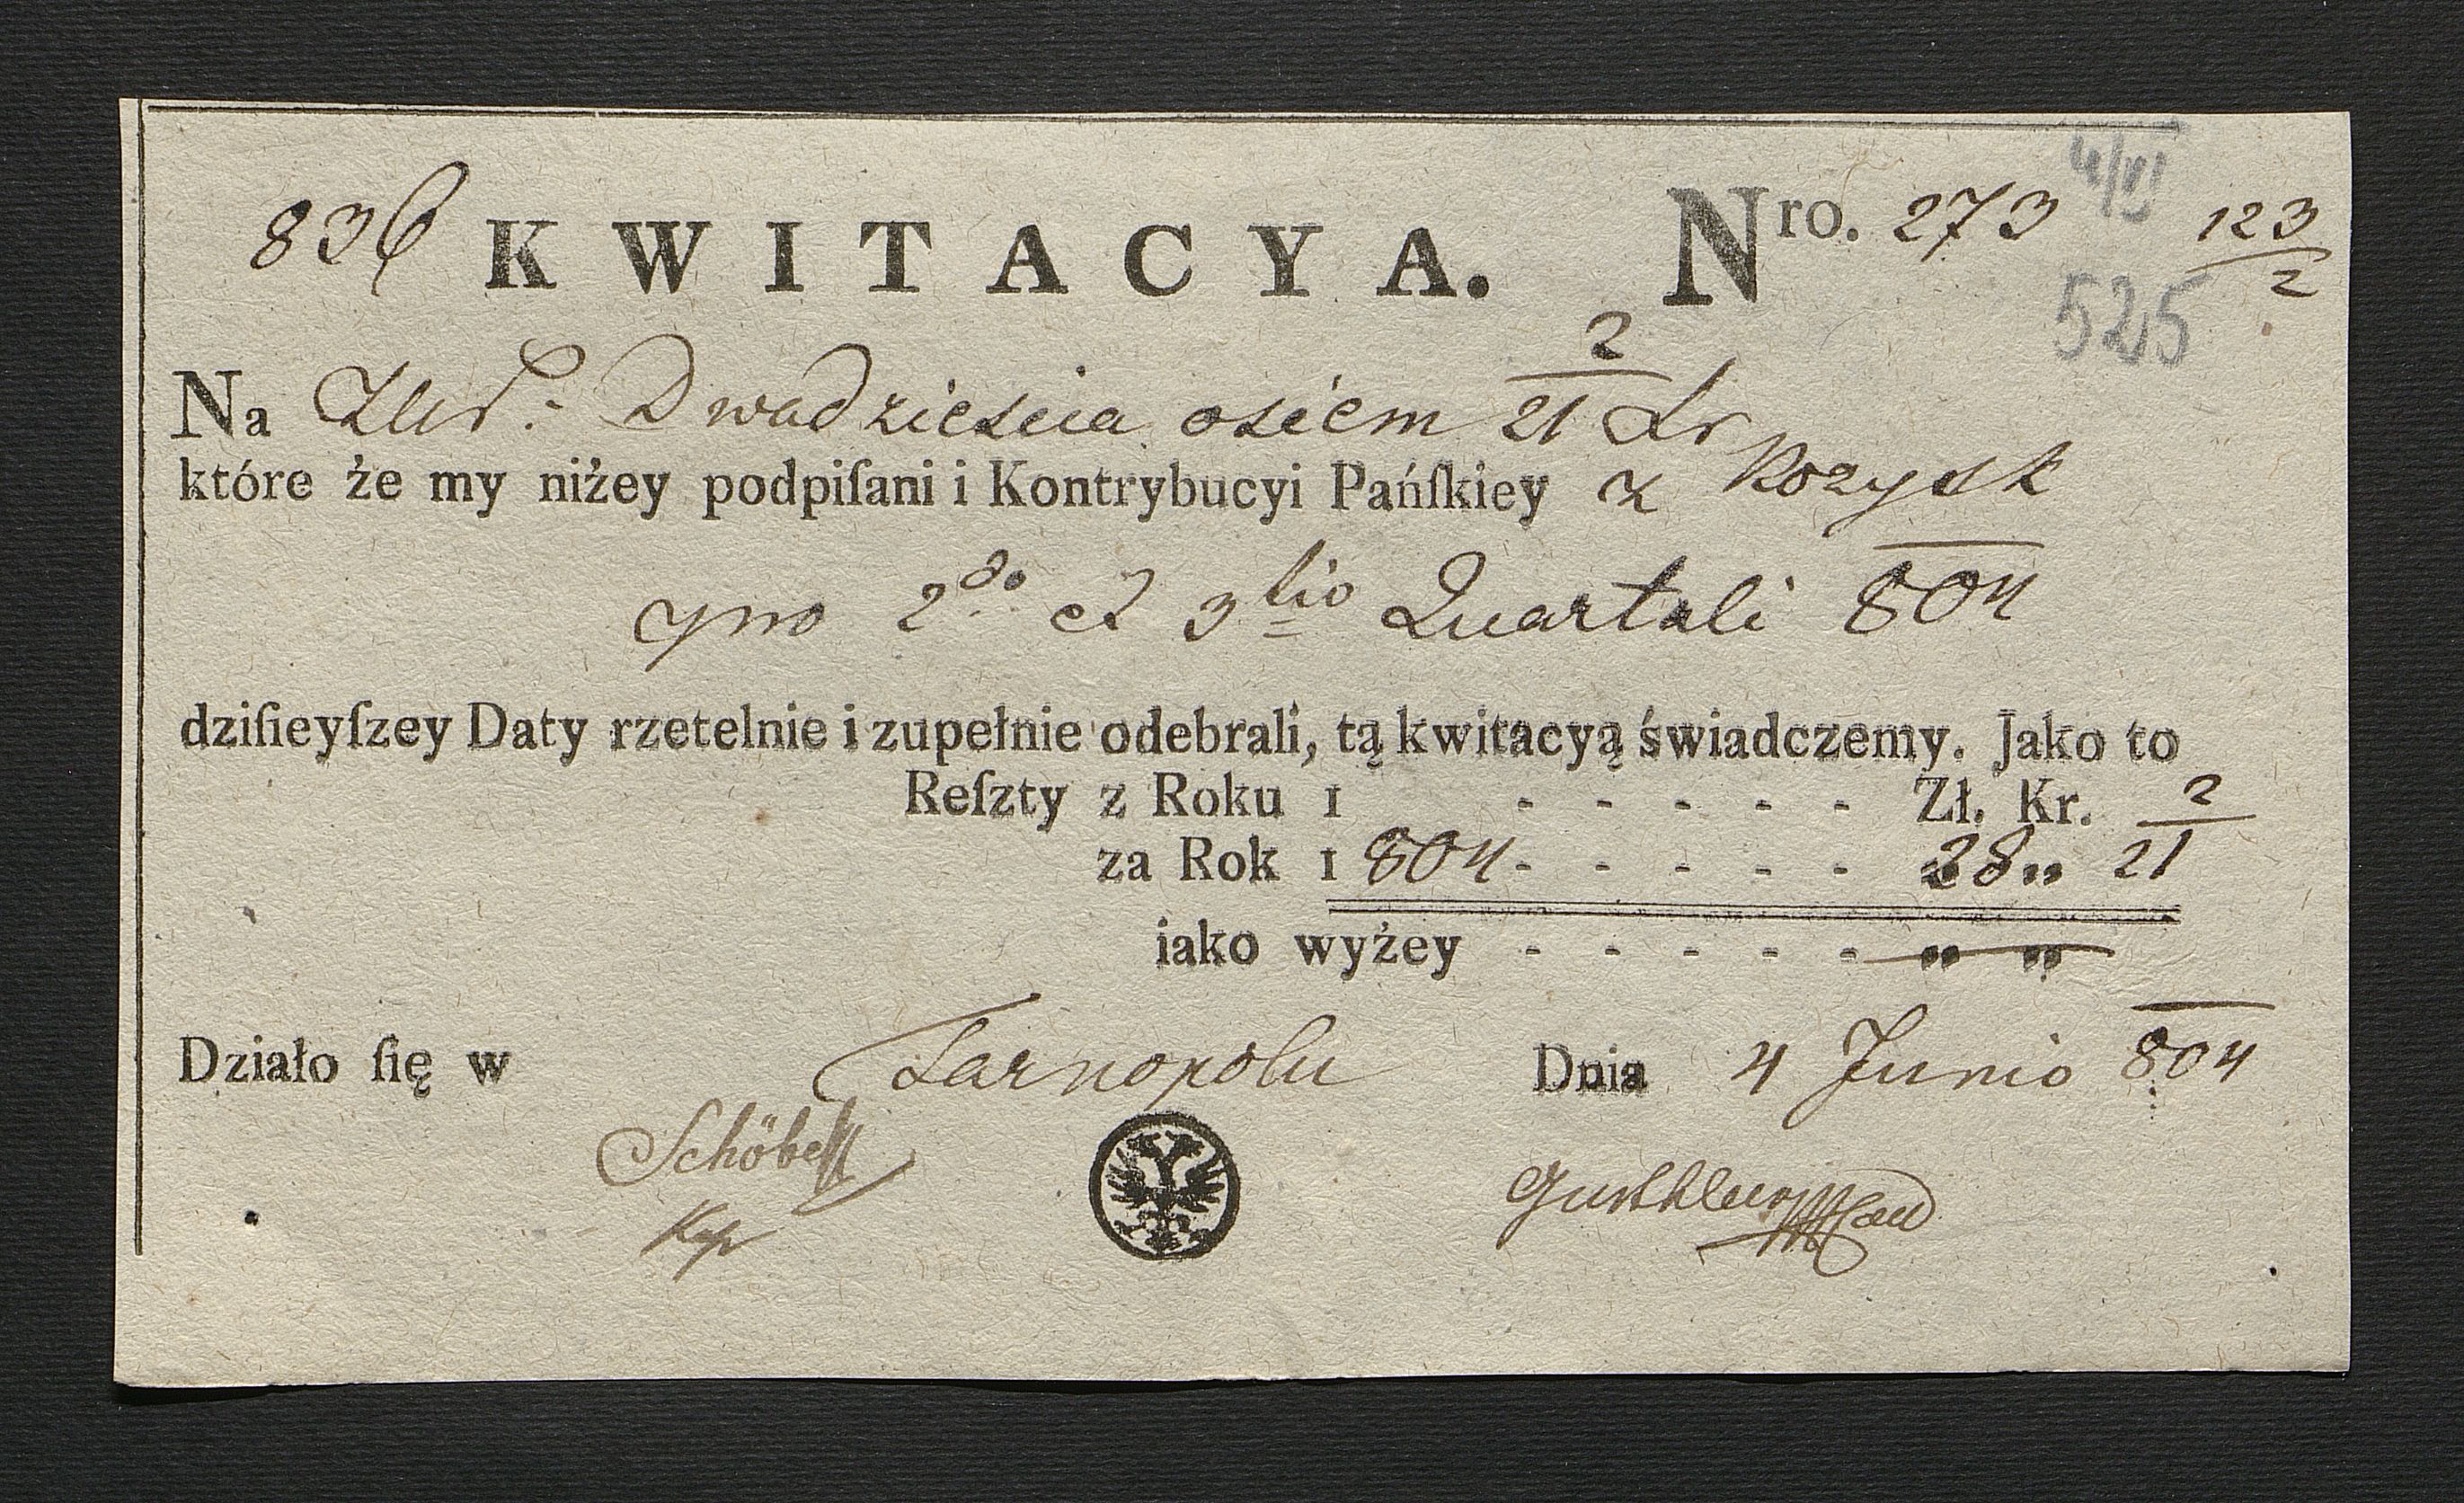 836 KWITACYA. Nro. 273 123/2
525
Na Złt: Dwadzieścia ośiem 21 2/ Xr
które że my niżey podpiſani i Kontrybucyi Pańſkiey z Kozysk
pro 2do et 3tio Quartali 804
dziſieyſzey Daty rzetelnie i zupełnie odebrali, tą kwitacyą świadczemy. Jako to
Reſzty z Roku 1 - - - - - Zł. Kr. 2
za Rok 1804 - - - - - 28 „ 21
iako wyżey - - - - - „ „
Działo ſię w Tarnopolu Dnia 4 Junio 804
Schöbell